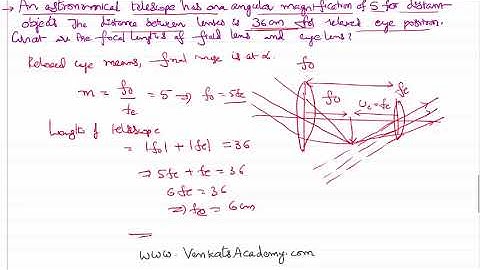 → An astronomical telescope has an angular magnification of 5 for distant
objects. The distance between lenses is 36cm for relaxed eye position.
What are the focal lengths of field lens and eye lens?
Relaxed eye means, final image is at α.
m = fo/fe = 5 ⇒ fo = 5fe
Length of telescope
= |fo| + |fe| = 36
⇒ 5fe + fe = 36
6fe = 36
⇒ fe = 6cm
fo
fe
fo
Ue = fe
www.VenkatsAcademy.com